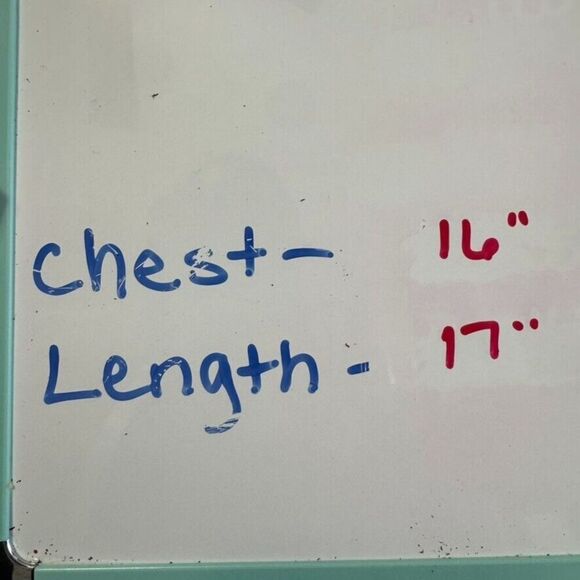 Chest - 16"
Length - 17"